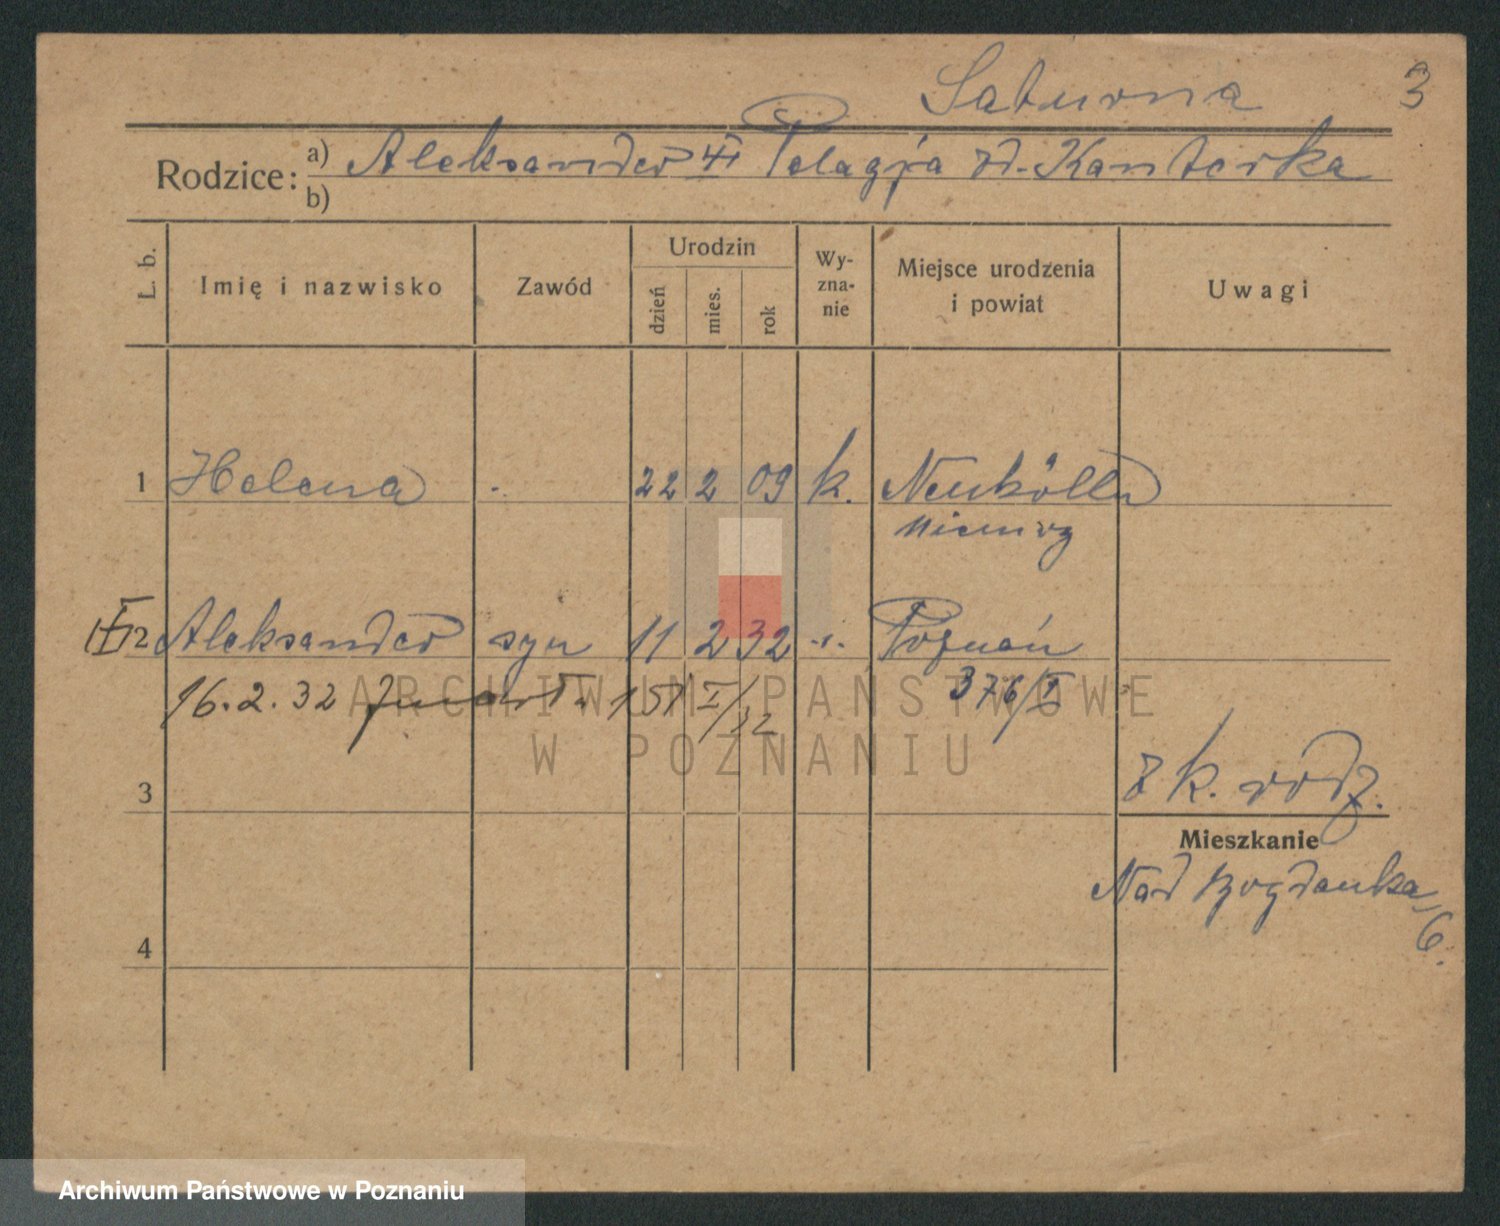 Saturna 3
Rodzice: a) Aleksander i Pelagja zd. Kanterka
b)
L. b. Imię i nazwisko Zawód Urodzin dzień mies. rok Wy-zna-nie Miejsce urodzenia i powiat Uwagi
1 Helena 22 2 09 k. Neukölln
Niemcy
2 Aleksander syn 11 2 32 Poznań
16.2.32 376/I
z k. rodz.
3
Mieszkanie
Nad Bogdanka 6.
4
ARCHIWUM PAŃSTWOWE
W POZNANIU
Archiwum Państwowe w Poznaniu